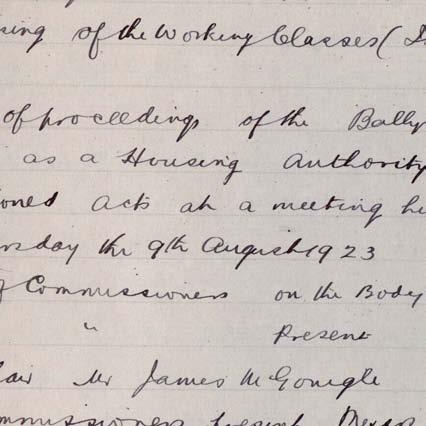 sing of the Working Classes (
of proceedings of the Bally
as a Housing Authority
ioned Acts at a meeting he
rsday the 9th August 1923
of Commissioners on the Body
" Present
air Mr James McGonigle
mmissioners present Messrs